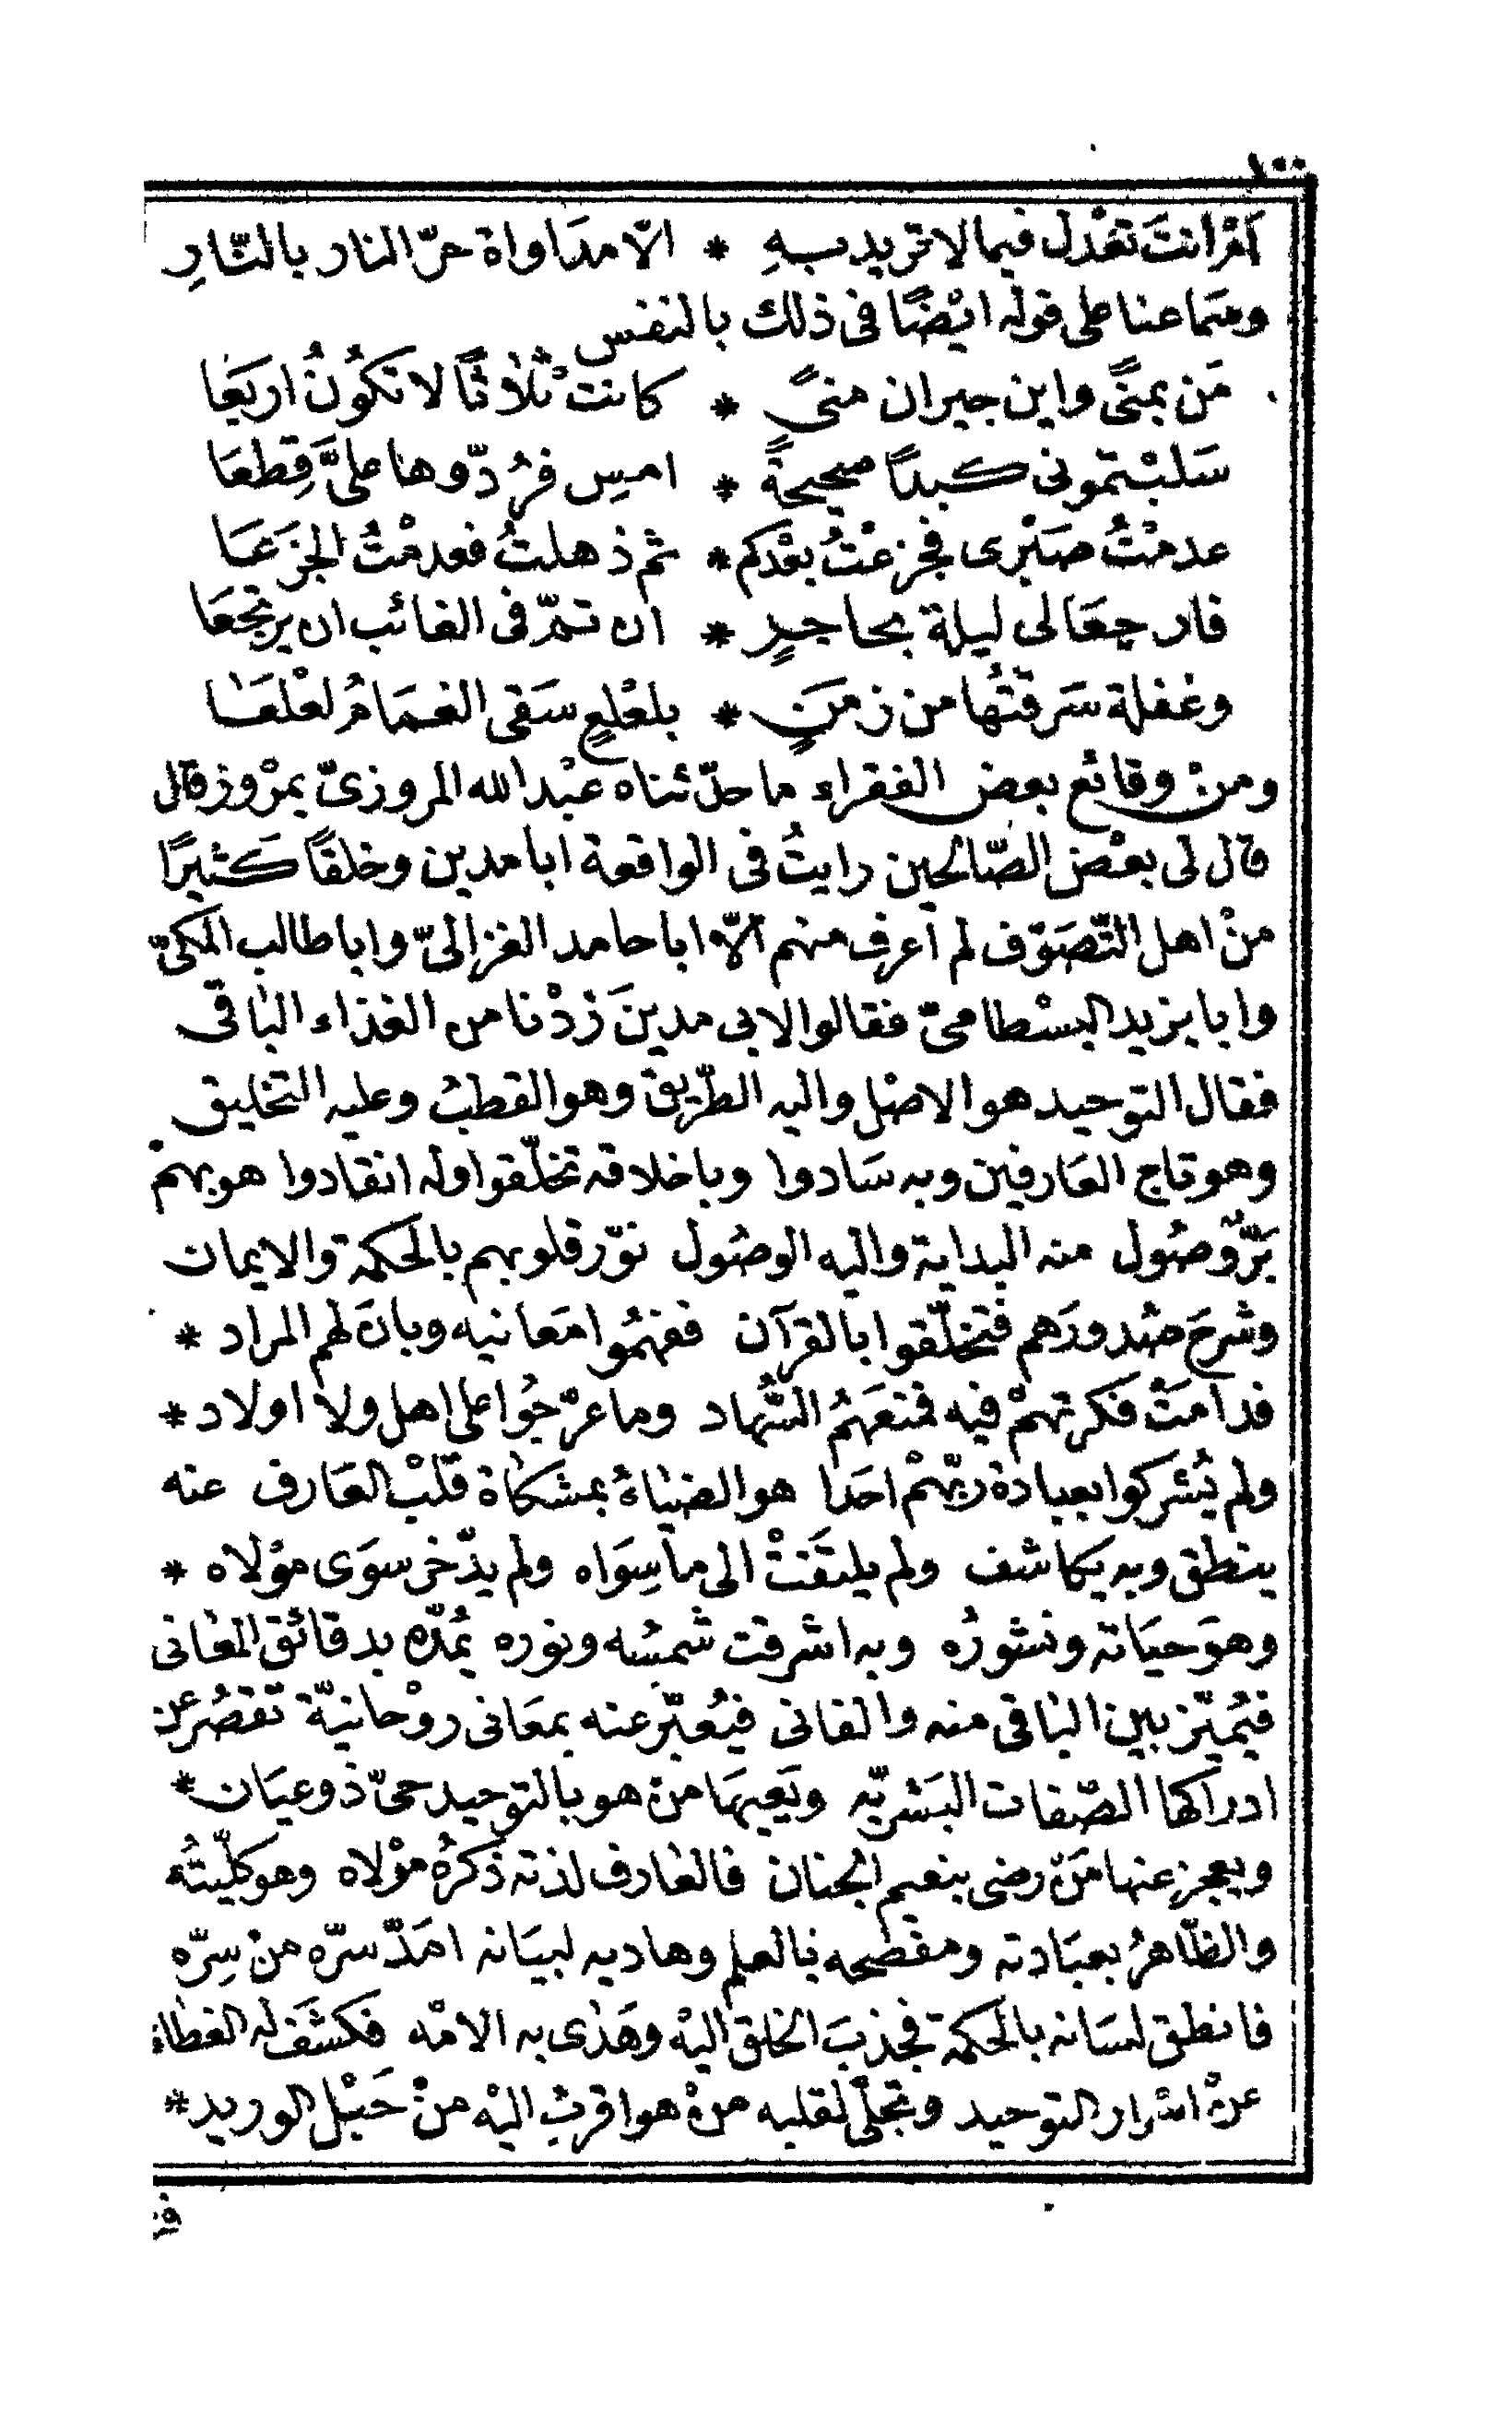 ١٠٠
اَمْ اَنتَ تعْذل فيما لا تريد بهِ * الّا مدَاواة حرّ النار بالنّارِ
وممّا عنا على قوله ايْضًا فى ذلك بالنفس
مَن بمنىً واين جيران منىً * كانت ثلاثًا لا تكُونُ اربَعَا
سَلبْتمونى كبدًا صحيحةً * امسِ فرُدّوها علىَّ قِطعَا
عدمْتُ صَبْرى فجزعْتُ بعْدكم * ثم ذهلتُ فعدمْتُ الجزَعَا
فارجعَا لى ليلة بحاجرٍ * ان تمّ فى الغائب ان يرتجعَا
وغفلة سَرقتُها من زمَنٍ * بلعْلعٍ سَقى الغمَامُ لعْلعَا
ومنْ وقائع بعض الفقراء ما حدّثناه عبْد الله المروزىّ بمرْوز قال
قال لى بعْض الصّالحين رايتُ فى الواقعة ابا مدين وخلقًا كثيرًا
منْ اهل التّصَوّف لم اَعرف منهم الّا ابا حامد الغزالىّ وابا طالب المكىّ
وابا يزيد البسْطامىّ فقالوا لابى مدينَ زدْنا من الغذاء البَاقى
فقال التوحيد هو الاصْل واليه الطّريق وهو القطبُ وعليه التخليق
وهو تاج العَارفين وبه سَادوا وباخلاقه تخلّقوا وله انقادوا هو بهمْ
بَرّ وصُول منه البداية واليه الوصُول نوّر قلوبهم بالحكمة والايمان
وشرحَ صُدورَهم فتخلّقوا بالقرآن ففهمُوا مَعانيه وبانَ لهم المراد *
فدامَتْ فكرتهمْ فيه فمنعَهُم السُّهاد وما عرّجُوا على اهل ولا اولاد *
ولم يُشركوا بعبادة ربّهمْ احَدا هو الضيَاءُ بمشكاة قلْب العَارف عنه
ينطق وبه يكاشف ولم يلتفَتْ الى ما سِوَاه ولم يدّخر سوَى موْلاه *
وهوَ حيَاته ونشورُه وبه اشرقت شمسُه ونوره يُمدّه بدقائق المعَانى
فيُميّز بين البَاقى منه والفانى فيُعبّر عنه بمعَانى روْحانيّة تقصُر عن
ادراكها الصّفات البَشريّه ويَعِيهَا منْ هو بالتوحيد حىّ ذو عيَان *
ويعجز عنها مَنْ رضى بنعيم الجنان فالعَارف لذته ذكرُ موْلاه وهو كلّيتُه
والظّاهرُ بعبَادته ومفصحه بالعلم وهاديه لبيَانه امَدّ سرّه منْ سِرّه
فانطق لسَانه بالحكمة فجذبَ الخلق اليْه وهَدى به الامْه فكشَفَ له الغطاء
عنْ اسْرار التوحيد وتجلّى لقلبه منْ هو اقربُ اليْه منْ حَبْل الوريد *